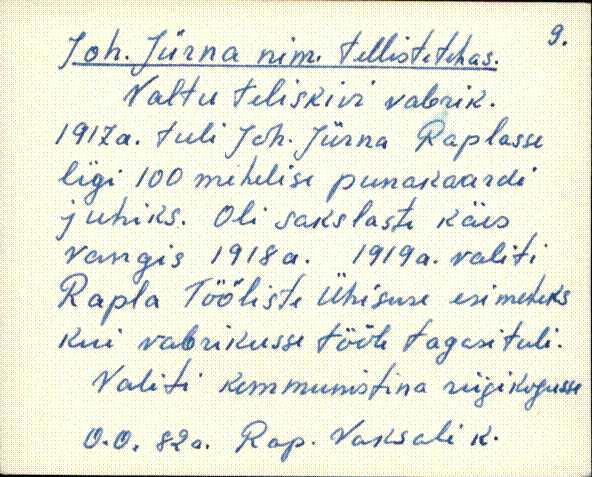 9.
Joh. Jürna nim. tellistetehas.
Valtu teliskivi vabrik.
1917a. tuli Joh. Jürna Raplasse
ligi 100 mehelise punakaardi
juhiks. Oli sakslaste käes
vangis 1918a. 1919a. valiti
Rapla Tööliste Ühisuse esimeheks
kui vabrikusse tööle tagasi tuli.
Valiti kommunistina riigikogusse
O.O. 82a. Rap. Vaksali k.